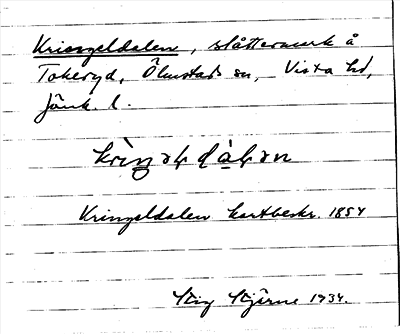 Kringeldalen, slåttermark å
Tokeryd, Ölmstads sn, Vista hd,
Jönk. l.
krìŋəldàlən
Kringeldalen kartbeskr. 1854
Stig Stjärne 1934.